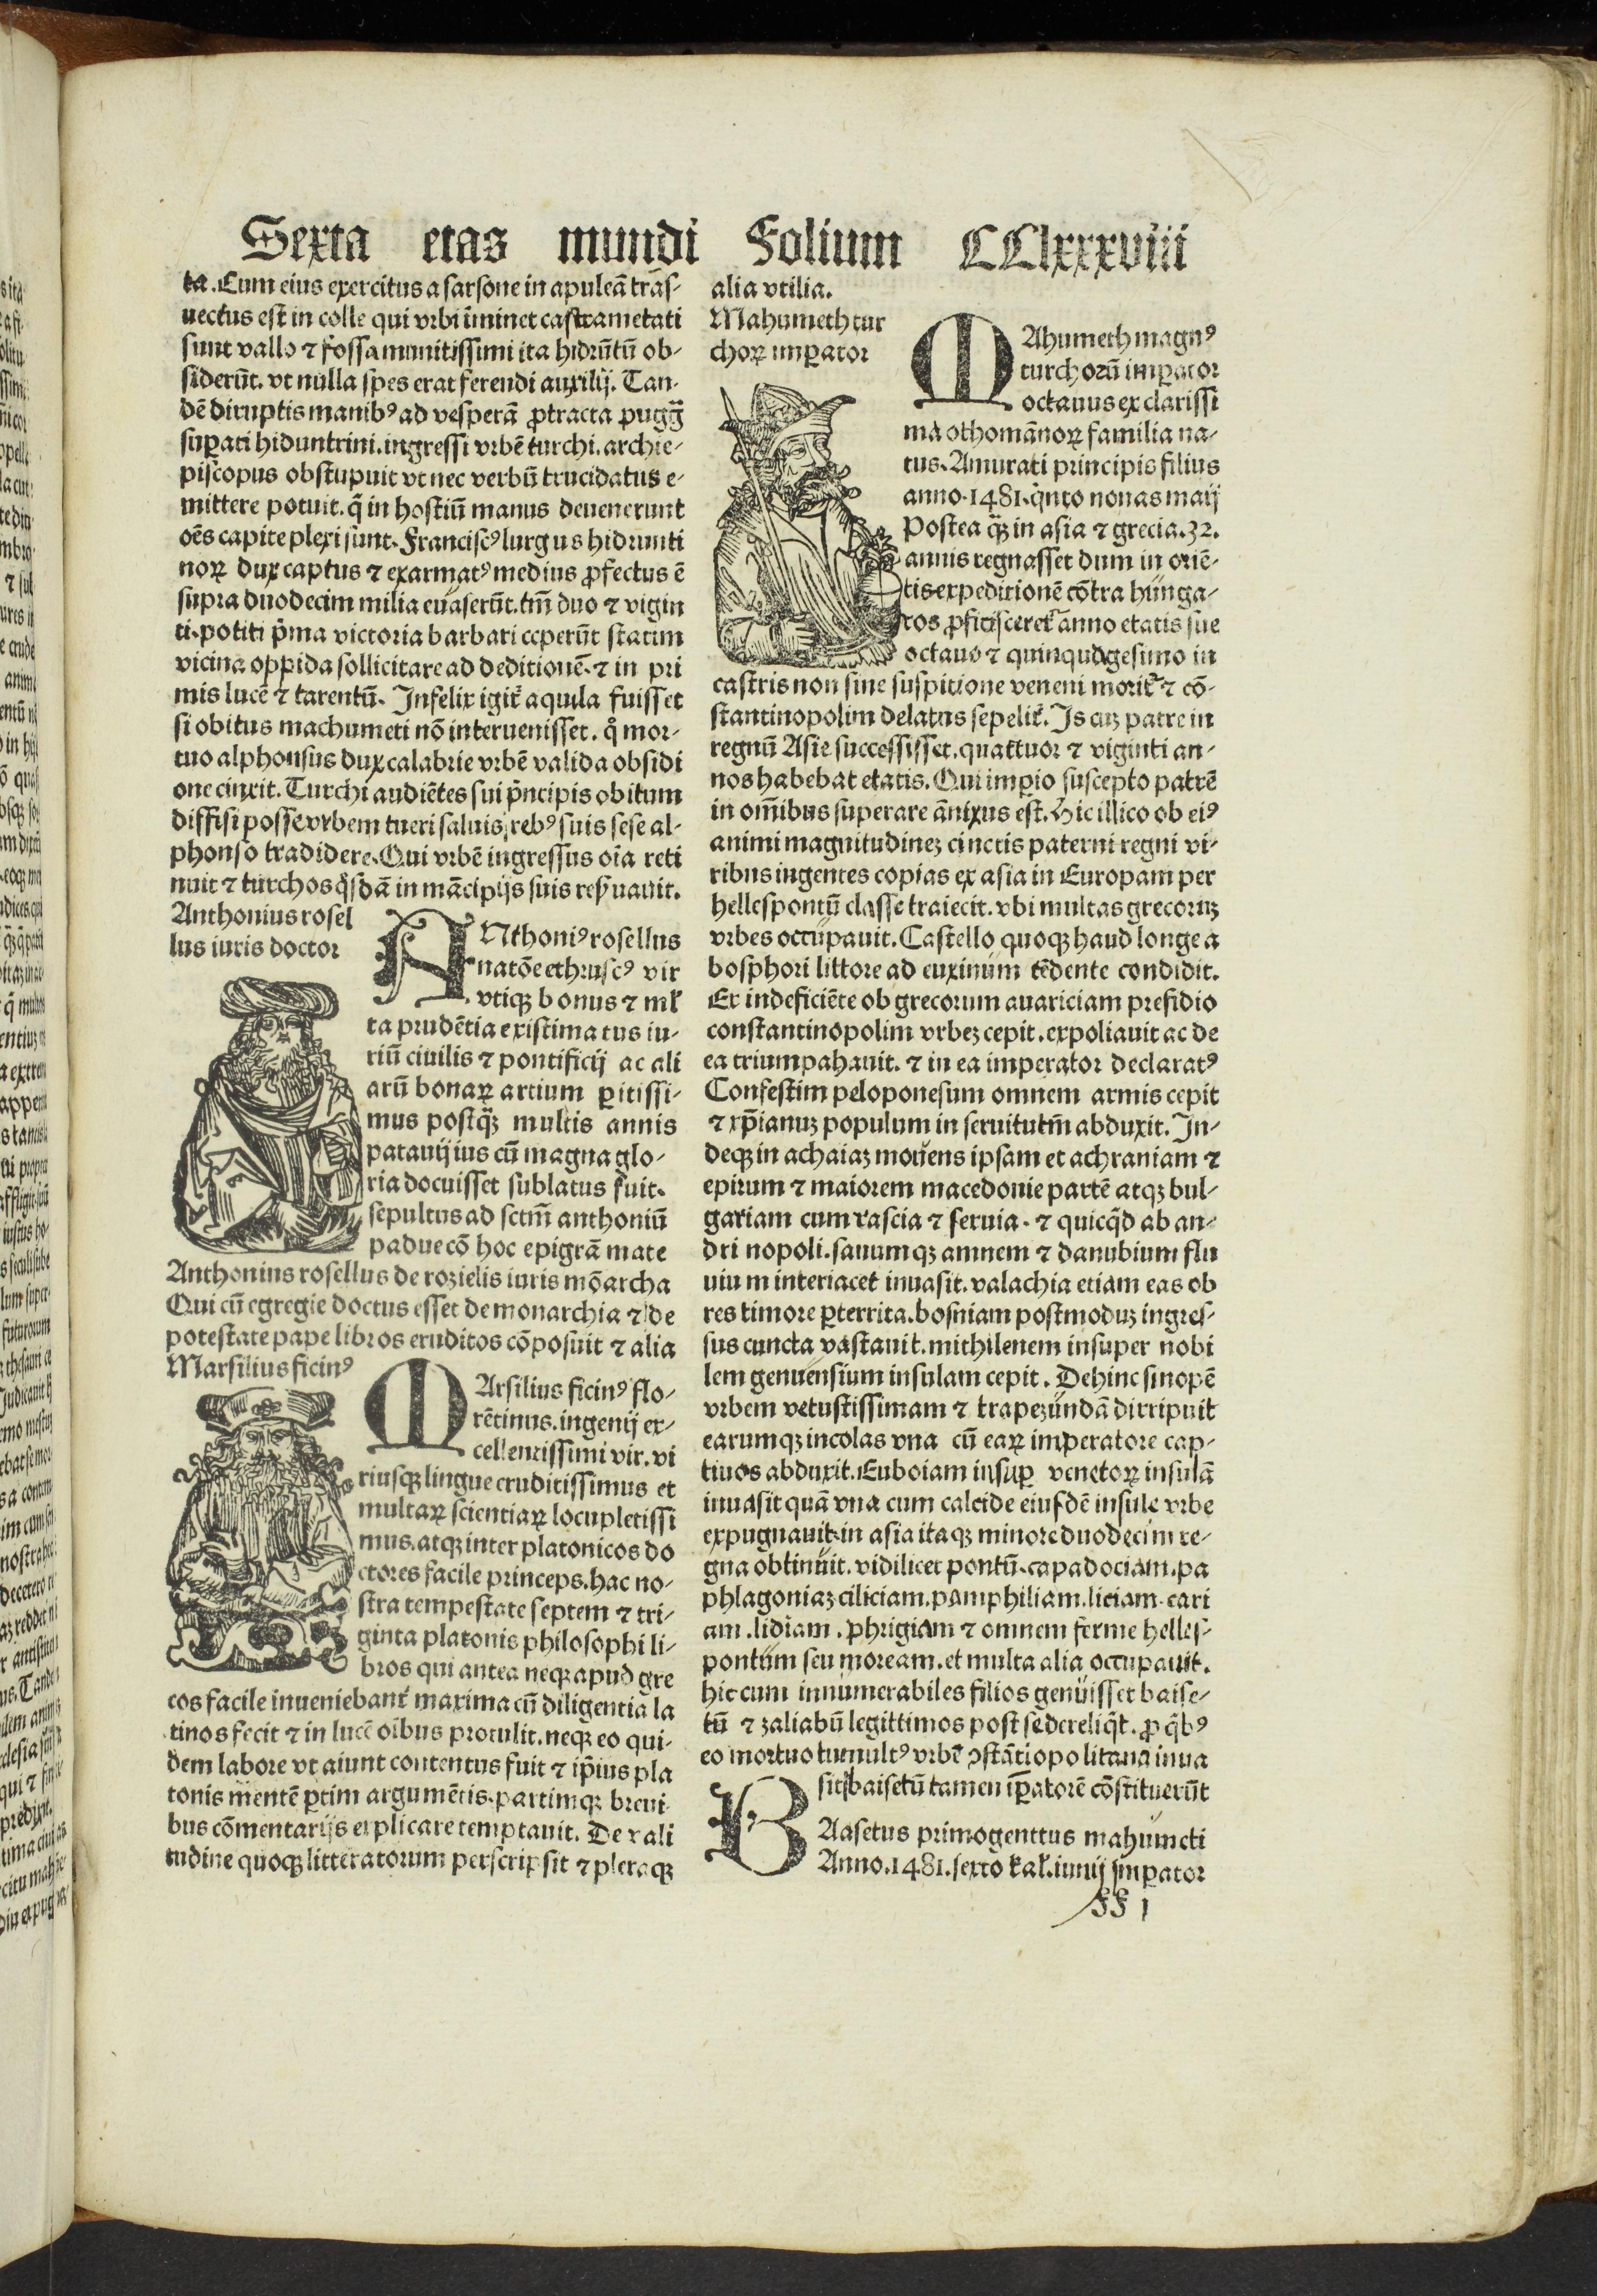 Sexta etas mundi Folium CClxxxviii
ta. Cum eius exercitus a sarsone in apuleā trās-
uectus est in colle qui vrbi īminet castrametati
sunt vallo ⁊ fossa munitissimi ita hidrūtū ob-
siderūt. vt nulla spes erat ferendi auxilij. Tan-
dē diruptis manibꝰ ad vesperā ꝓtracta pugā
suꝑati hiduntrini. ingressi vrbē turchi. archie-
piscopus obstupuit vt nec verbū trucidatus e-
mittere potuit. q̄ in hostiū manus deuenerunt
oēs capite plexi sunt. Franciscꝰ lurgus hidrunti
noꝝ dux captus ⁊ exarmatꝰ medius ꝓfectus ē
supra duodecim milia euaserūt. tm̄ duo ⁊ vigin
ti. potiti p̄ma victoria barbari ceperūt statim
vicina oppida sollicitare ad deditionē. ⁊ in pri
mis lucē ⁊ tarentū. Infelix igit̄ aquila fuisset
si obitus machumeti nō interuenisset. q° mor-
tuo alphonsus dux calabrie vrbē valida obsidi
one cinxit. Turchi audiētes sui p̄ncipis obitum
diffisi posse vrbem tueri saluis rebꝰ suis sese al-
phonso tradidere. Qui vrbē ingressus oīa reti
nuit ⁊ turchos q°sdā in mācipijs suis res̄uauit.
Anthonius rosel
lus iuris doctor
ANthoniꝰ rosellus
natōe ethruscꝰ vir
vtiqꝫ bonus ⁊ ml̄
ta prudētia existimatus iu-
riū ciuilis ⁊ pontificij ac ali
arū bonaꝝ artium ꝑitissi-
mus postq̄ꝫ multis annis
patauij ius cū magna glo-
ria docuisset sublatus fuit.
sepultus ad sctm̄ anthoniū
padue cō hoc epigrā mate
Anthonius rosellus de rozielis iuris mōarcha
Qui cū egregie doctus esset de monarchia ⁊ de
potestate pape libros eruditos cōposuit ⁊ alia
Marsilius ficinꝰ
MArsilius ficinꝰ flo-
rētinus. ingenij ex-
cellentissimi vir. vt
riusqꝫ lingue eruditissimus et
multaꝝ scientiaꝝ locupletissi
mus. atqꝫ inter platonicos do
ctores facile princeps. hac no-
stra tempestate septem ⁊ tri-
ginta platonis philosophi li-
bros qui antea neqꝫ apud gre
cos facile inueniebant̄ maxima cū diligentia la
tinos fecit ⁊ in lucē oībus protulit. neqꝫ eo qui-
dem labore vt aiunt contentus fuit ⁊ ip̄ius pla
tonis mentē ꝑtim argumētis. partimqꝫ breui-
bus cōmentarijs explicare temptauit. De vali
tudine quoqꝫ litteratorum perscripsit ⁊ pleraqꝫ
alia vtilia.
Mahumeth tur
choꝝ imꝑator
MAhumeth magnꝰ
turchorū imꝑator
octauus ex clarissi
ma othomānoꝝ familia na-
tus. Amurati principis filius
anno. 1481. q̄nto nonas maij
Postea q̄ꝫ in asia ⁊ grecia. 32.
annis regnasset dum in oriē-
tis expeditionē cōtra hunga-
ros ꝓficisceret̄ anno etatis sue
octauo ⁊ quinquagesimo in
castris non sine suspitione veneni morit̄ ⁊ cō-
stantinopolim delatus sepelit̄. Is cuꝫ patre in
regnū Asie successisset. quattuor ⁊ viginti an-
nos habebat etatis. Qui impio suscepto patrē
in om̄ibus superare ānixus est. Hic illico ob eiꝰ
animi magnitudineꝫ cinctis paterni regni vi-
ribus ingentes copias ex asia in Europam per
hellespontū classe traiecit. vbi multas grecoruꝫ
vrbes occupauit. Castello quoqꝫ haud longe a
bosphori littore ad euxinum tēdente condidit.
Ex indeficiēte ob grecorum auariciam presidio
constantinopolim vrbeꝫ cepit. expoliauit ac de
ea triumpahauit. ⁊ in ea imperator declaratꝰ
Confestim peloponesum omnem armis cepit
⁊ xp̄ianuꝫ populum in seruitutm̄ abduxit. In-
deqꝫ in achaiaꝫ mouens ipsam et achraniam ⁊
epirum ⁊ maiorem macedonie partē atqꝫ bul-
gariam cum rascia ⁊ seruia. ⁊ quicq̄d ab an-
dri nopoli. sauumqꝫ amnem ⁊ danubium flu
uium interiacet inuasit. valachia etiam eas ob
res timore ꝑterrita. bosniam postmoduꝫ ingres-
sus cuncta vastauit. mithilenem insuper nobi
lem genuensium insulam cepit. Dehinc sinopē
vrbem vetustissimam ⁊ trapezundā dirripuit
earumqꝫ incolas vna cū eaꝝ imperatore cap-
tiuos abduxit. Euboiam insuꝑ venetoꝝ insulā
inuasit quā vna cum calcide eiusdē insule vrbe
expugnauit. in asia itaqꝫ minore duodecim re-
gna obtinuit. vidilicet pontū. capadociam. pa
phlagoniaꝫ ciliciam. pamphiliam. liciam. cari
am. lidiam. phrigiam ⁊ omnem ferme helles-
pontum seu moream. et multa alia occupauit.
hic cum innumerabiles filios genuisset baise-
tū ⁊ zaliabū legittimos post se dereliq̄t. ꝓ q̄bꝰ
eo mortuo tumultꝰ vrbē ꝯstātiopolitana inua
sit. baisetū tamen iꝑatorē cōstituerūt
BAasetus primogenttus mahumeti
Anno. 1481. sexto kal̄. iunij imꝑator
SS 1